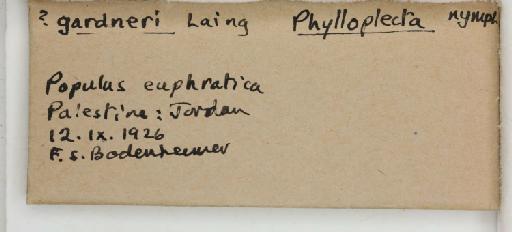 ? gardneri Laing Phylloplecta nymph
Populus euphratica
Palestine: Jordan
12.ix.1926
F.S. Bodenheimer